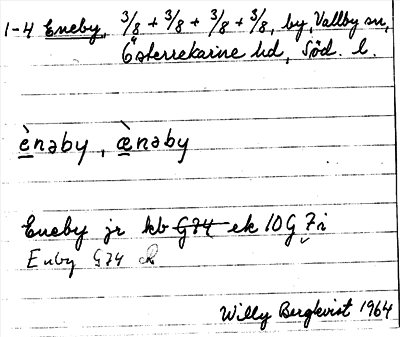 1-4 Eneby, 3/8 + 3/8 + 3/8 + 3/8, by, Vallby sn,
Österrekarne hd, Söd. l.
ènəby, æ̀nəby
Eneby jr kb G74 ek 10G 7i
Enby G74
Willy Bergkvist 1964